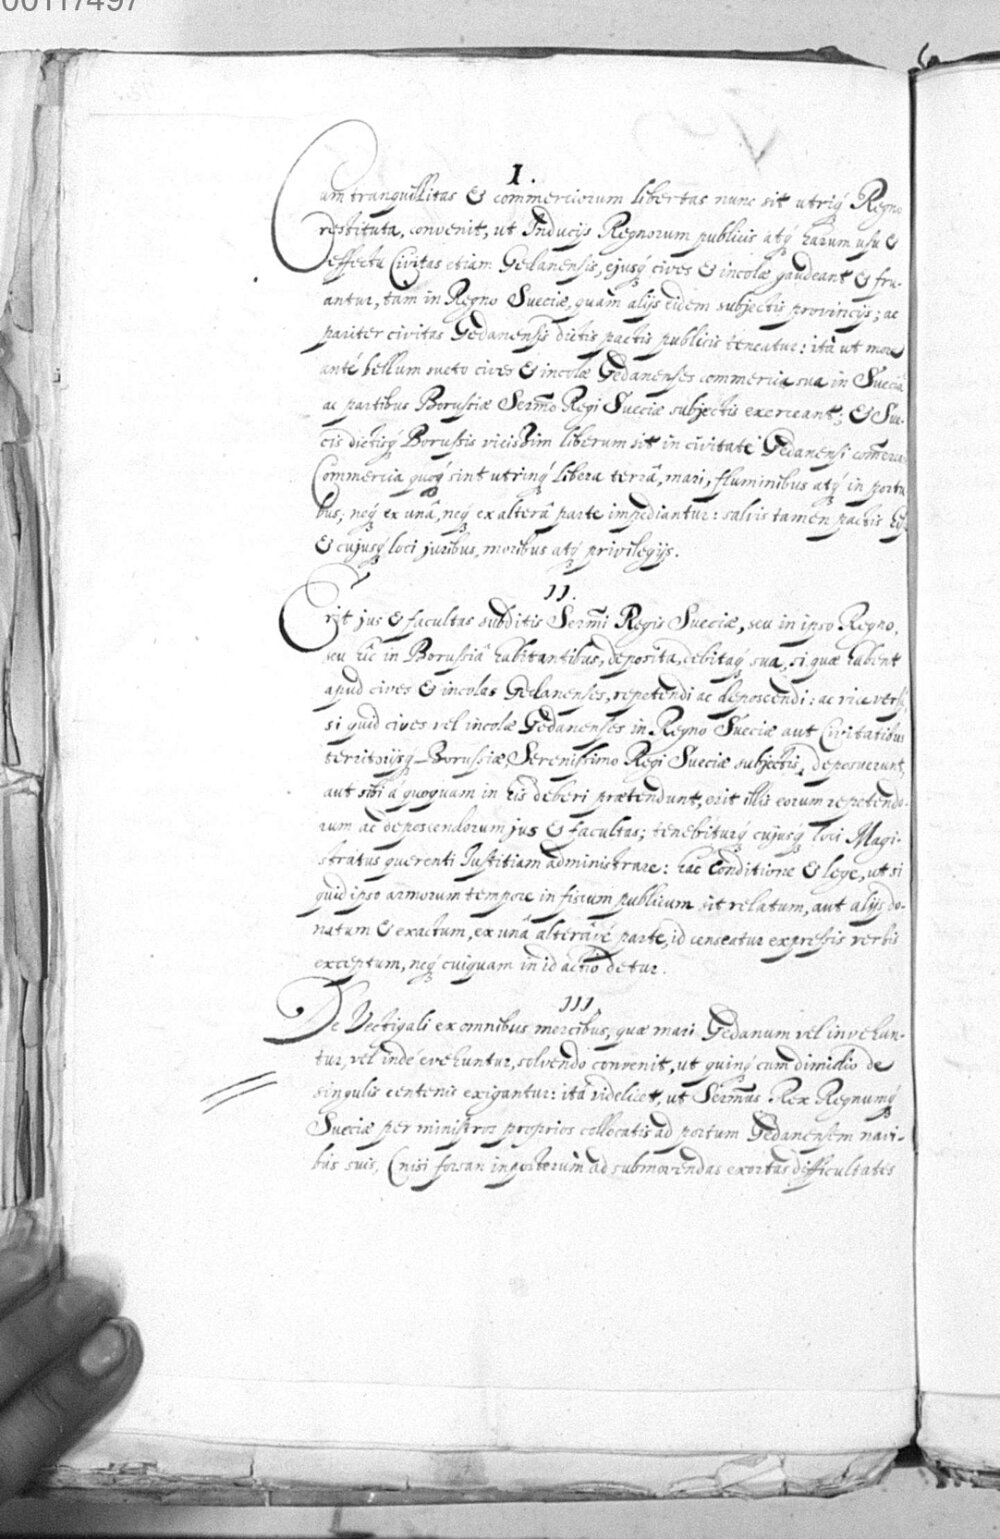 00117497
I.
Cum tranquillitas & commerciorum libertas nunc sit utriq́ Regno
restituta, convenit, ut Inducijs Regnorum publicis atq́ harum usu &
effectu Civitas etiam Gedanensis, ejusq́ cives & incolæ gaudeant & fru-
antur, tam in Regno Sueciæ, quam alijs eidem subjectis provincijs; ac
pariter civitas Gedanensis dictis pactis publicis teneatur: ità ut more
anté bellum sueto cives & incolæ Gedanenses commercia sua in Suecia
ac partibus Borussiæ Sermo Regi Sueciæ subjectis exerceant, & Sue-
cis dictisq́ Borussis vicissim liberum sit in civitate Gedanensi
Commercia quoq́ sint utrinq́ libera terrâ, mari, fluminibus atq́ in portu
bus; neq́ ex unâ, neq́ ex alterâ parte impediantur: salvis tamen pactis
& cujusq́ loci juribus, moribus atq́ privilegijs.
II.
Erit jus & facultas subditis Sermi Regis Sueciæ, seu in ipso Regno,
seu hîc in Borussiâ habitantibus, deposita, debitaq́ sua, si quæ habent
apud cives & incolas Gedanenses, repetendi ac deposcendi: ac vice versâ
si quid cives vel incolæ Gedanenses in Regno Sueciæ aut Civitatibus
territorijsq́ Borussiæ Serenissimo Regi Sueciæ subjectis, deposuerunt,
aut sibi á quoquam in his deberi prætendunt, erit illis eorum repetendo-
rum ac deposcendorum jus & facultas; tenebiturq́ cujusq́ loci Magi-
stratus querenti Justitiam administrare: hac conditione & lege, ut si
quid ipso armorum tempore in fiscum publicum sit relatum, aut alijs do-
natum & exactum, ex unâ alterâvé parte, id censeatur expressis verbis
exceptum, neq́ cuiquam in id actio detur.
III.
De Vectigali ex omnibus mercibus, quæ mari Gedanum vel invehun-
tur, vel indé evehuntur, solvendo convenit, ut quinq́ cum dimidio de
singulis centenis exigantur: ità videlicet, ut Sermus Rex Regnumq́
Sueciæ per ministros proprios collocatis ad portum Gedanensem navi-
bus suis, (nisi forsan ingestorum ad submovendas exortas difficultates